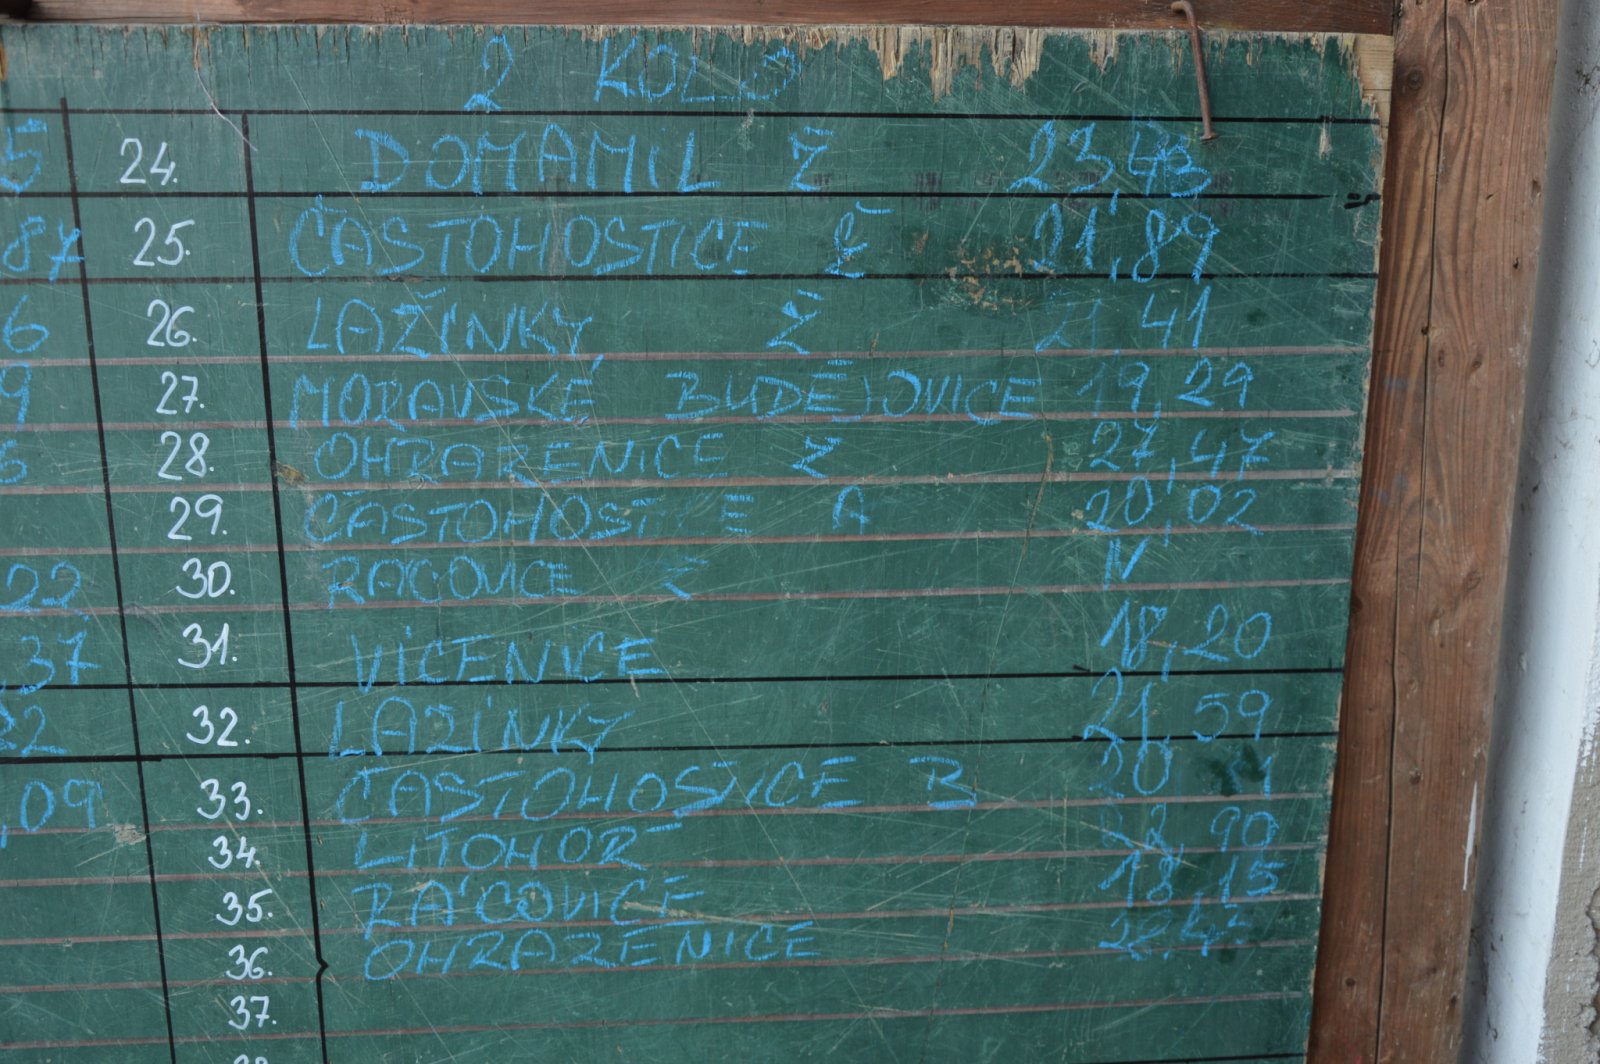 2 KOLO
5 24. DOMAMIL Ž 23,43
87 25. ČASTOHOSTICE Ž 21,89
6 26. LAŽÍNKY Ž 21,41
9 27. MORAVSKÉ BUDĚJOVICE 19,29
28. OHRAZENICE Ž 27,47
29. A 20,02
22 30. RÁCOVICE Ž N
37 31. VÍCENICE 18,20
32. LAŽÍNKY 21,59
,09 33. ČASTOHOSTICE B
34. LITOHOŘ 90
35. RÁCOVICE 18,15
36. OHRAZENICE
37.